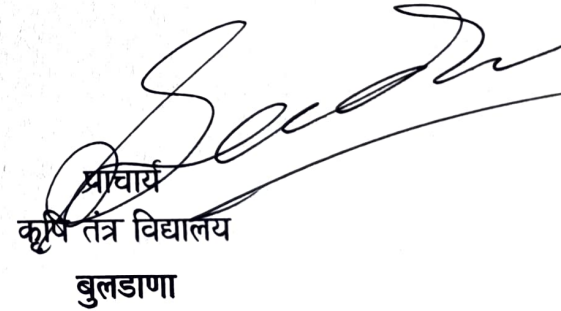 प्राचार्य
कृषि तंत्र विद्यालय
बुलडाणा